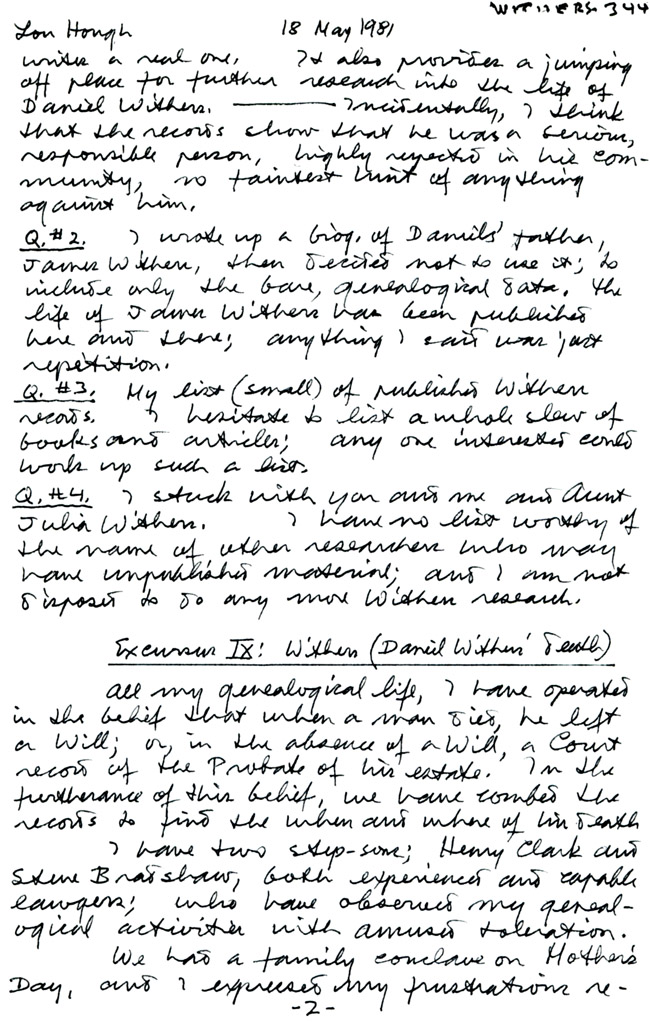 WITHERS. 344
Lon Hough 18 May 1981
writes a real one. It also provides a jumping
off place for further research into the life of
Daniel Withers. ——— Incidentally, I think
that the records show that he was a serious,
responsible person, highly respected in his com-
munity, no faintest hint of anything
against him.
Q. #2. I wrote up a biog. of Daniels' father,
James Withers, then decided not to use it; to
include only the bare, genealogical data. The
life of James Withers has been published
here and there; anything I said was just
repetition.
Q. #3. My list (small) of published Withers
records. I hesitate to list a whole slew of
books and articles; any one interested could
work up such a list.
Q. #4. I stuck with you and me and Aunt
Julia Withers. I have no list worthy of
the name of other researchers who may
have unpublished material; and I am not
disposed to do any more Withers research.
Excursus IX: Withers (Daniel Withers' death)
All my genealogical life, I have operated
in the belief that when a man died, he left
a Will; or, in the absence of a Will, a Court
record of the Probate of his estate. In the
furtherance of this belief, we have combed the
records to find the when and where of his death
I have two step-sons; Henry Clark and
Steve Bradshaw, both experienced and capable
lawyers; who have observed my geneal-
ogical activities with amused toleration.
We had a family conclave on Mother's
Day, and I expressed my frustrations re-
-2-